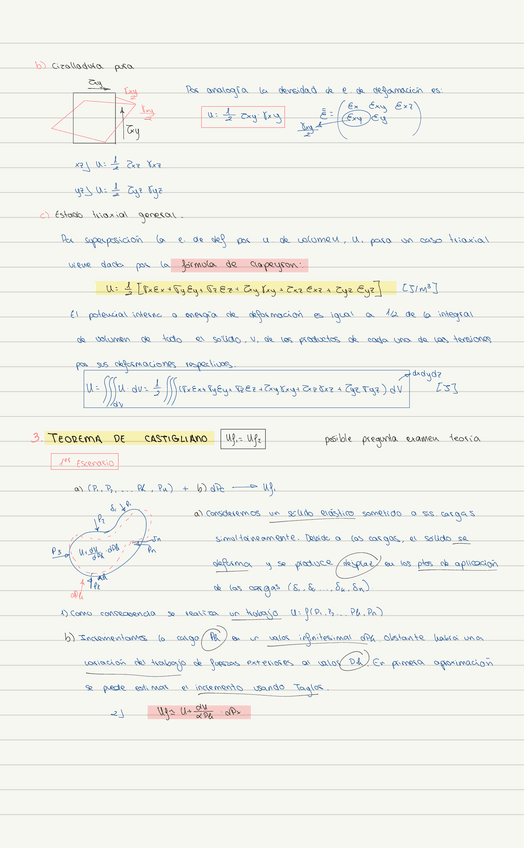 b) Cizalladura pura
τxy
γxy
γxy
τxy
Por analogía la densidad de e. de deformación es:
u = 1/2 τxy γxy
ε = ( εx εxy εxz
εxy εy )
γxy/2
xz) u = 1/2 τxz γxz
yz) u = 1/2 τyz γyz
c) Estado triaxial general.
Por superposición la e. de def por u de volumen, u, para un caso triaxial
viene dada por la fórmula de Clapeyron:
u = 1/2 [σxεx + σyεy + σzεz + τxy γxy + τxz εxz + τyz εyz] [J/m³]
El potencial interno o energía de deformación es igual a 1/2 de la integral
de volumen de todo el sólido, V, de los productos de cada una de las tensiones
por sus deformaciones respectivas.
dxdydz
U = ∭dV u dV = 1/2 ∭ (σxεx + σyεy + σzεz + τxyγxy + τxzγxz + τyzγyz) dV [J]
3. TEOREMA DE CASTIGLIANO Uf1 = Uf2 posible pregunta examen teoría
1er Escenario
a) (P1, P2, ... Pk, Pn) + b) dPk → Uf1
a) Consideremos un sólido elástico sometido a sus cargas
simultáneamente. Debido a las cargas, el sólido se
deforma y se produce desplaz en los ptos de aplicación
de las cargas (δ1, δ2, ..., δk, δn)
1) Como consecuencia se realiza un trabajo U = f(P1, P2, ... Pk, Pn)
b) Incrementamos la carga Pk en un valor infinitesimal dPk obstante habrá una
variación del trabajo de fuerzas exteriores al valor Dk. En primera aproximación
se puede estimar el incremento usando Taylor.
2) Uf1 = U + dU/dPk · dPk